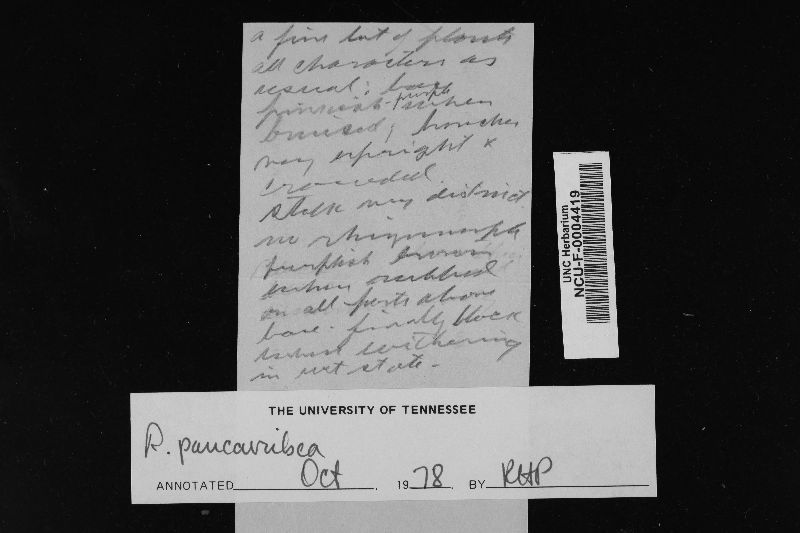 a fine lot of plants
all characters as
usual; base
pinkish-purple when
bruised; branches
very upright &
crowded.
Stalk very distinct
no rhizomorphs
purplish brown
when rubbed
on all parts above
base. finally black
when withering
in wet state-
UNC Herbarium
NCU-F-0004419
THE UNIVERSITY OF TENNESSEE
R.
ANNOTATED Oct. 1978. BY RHP